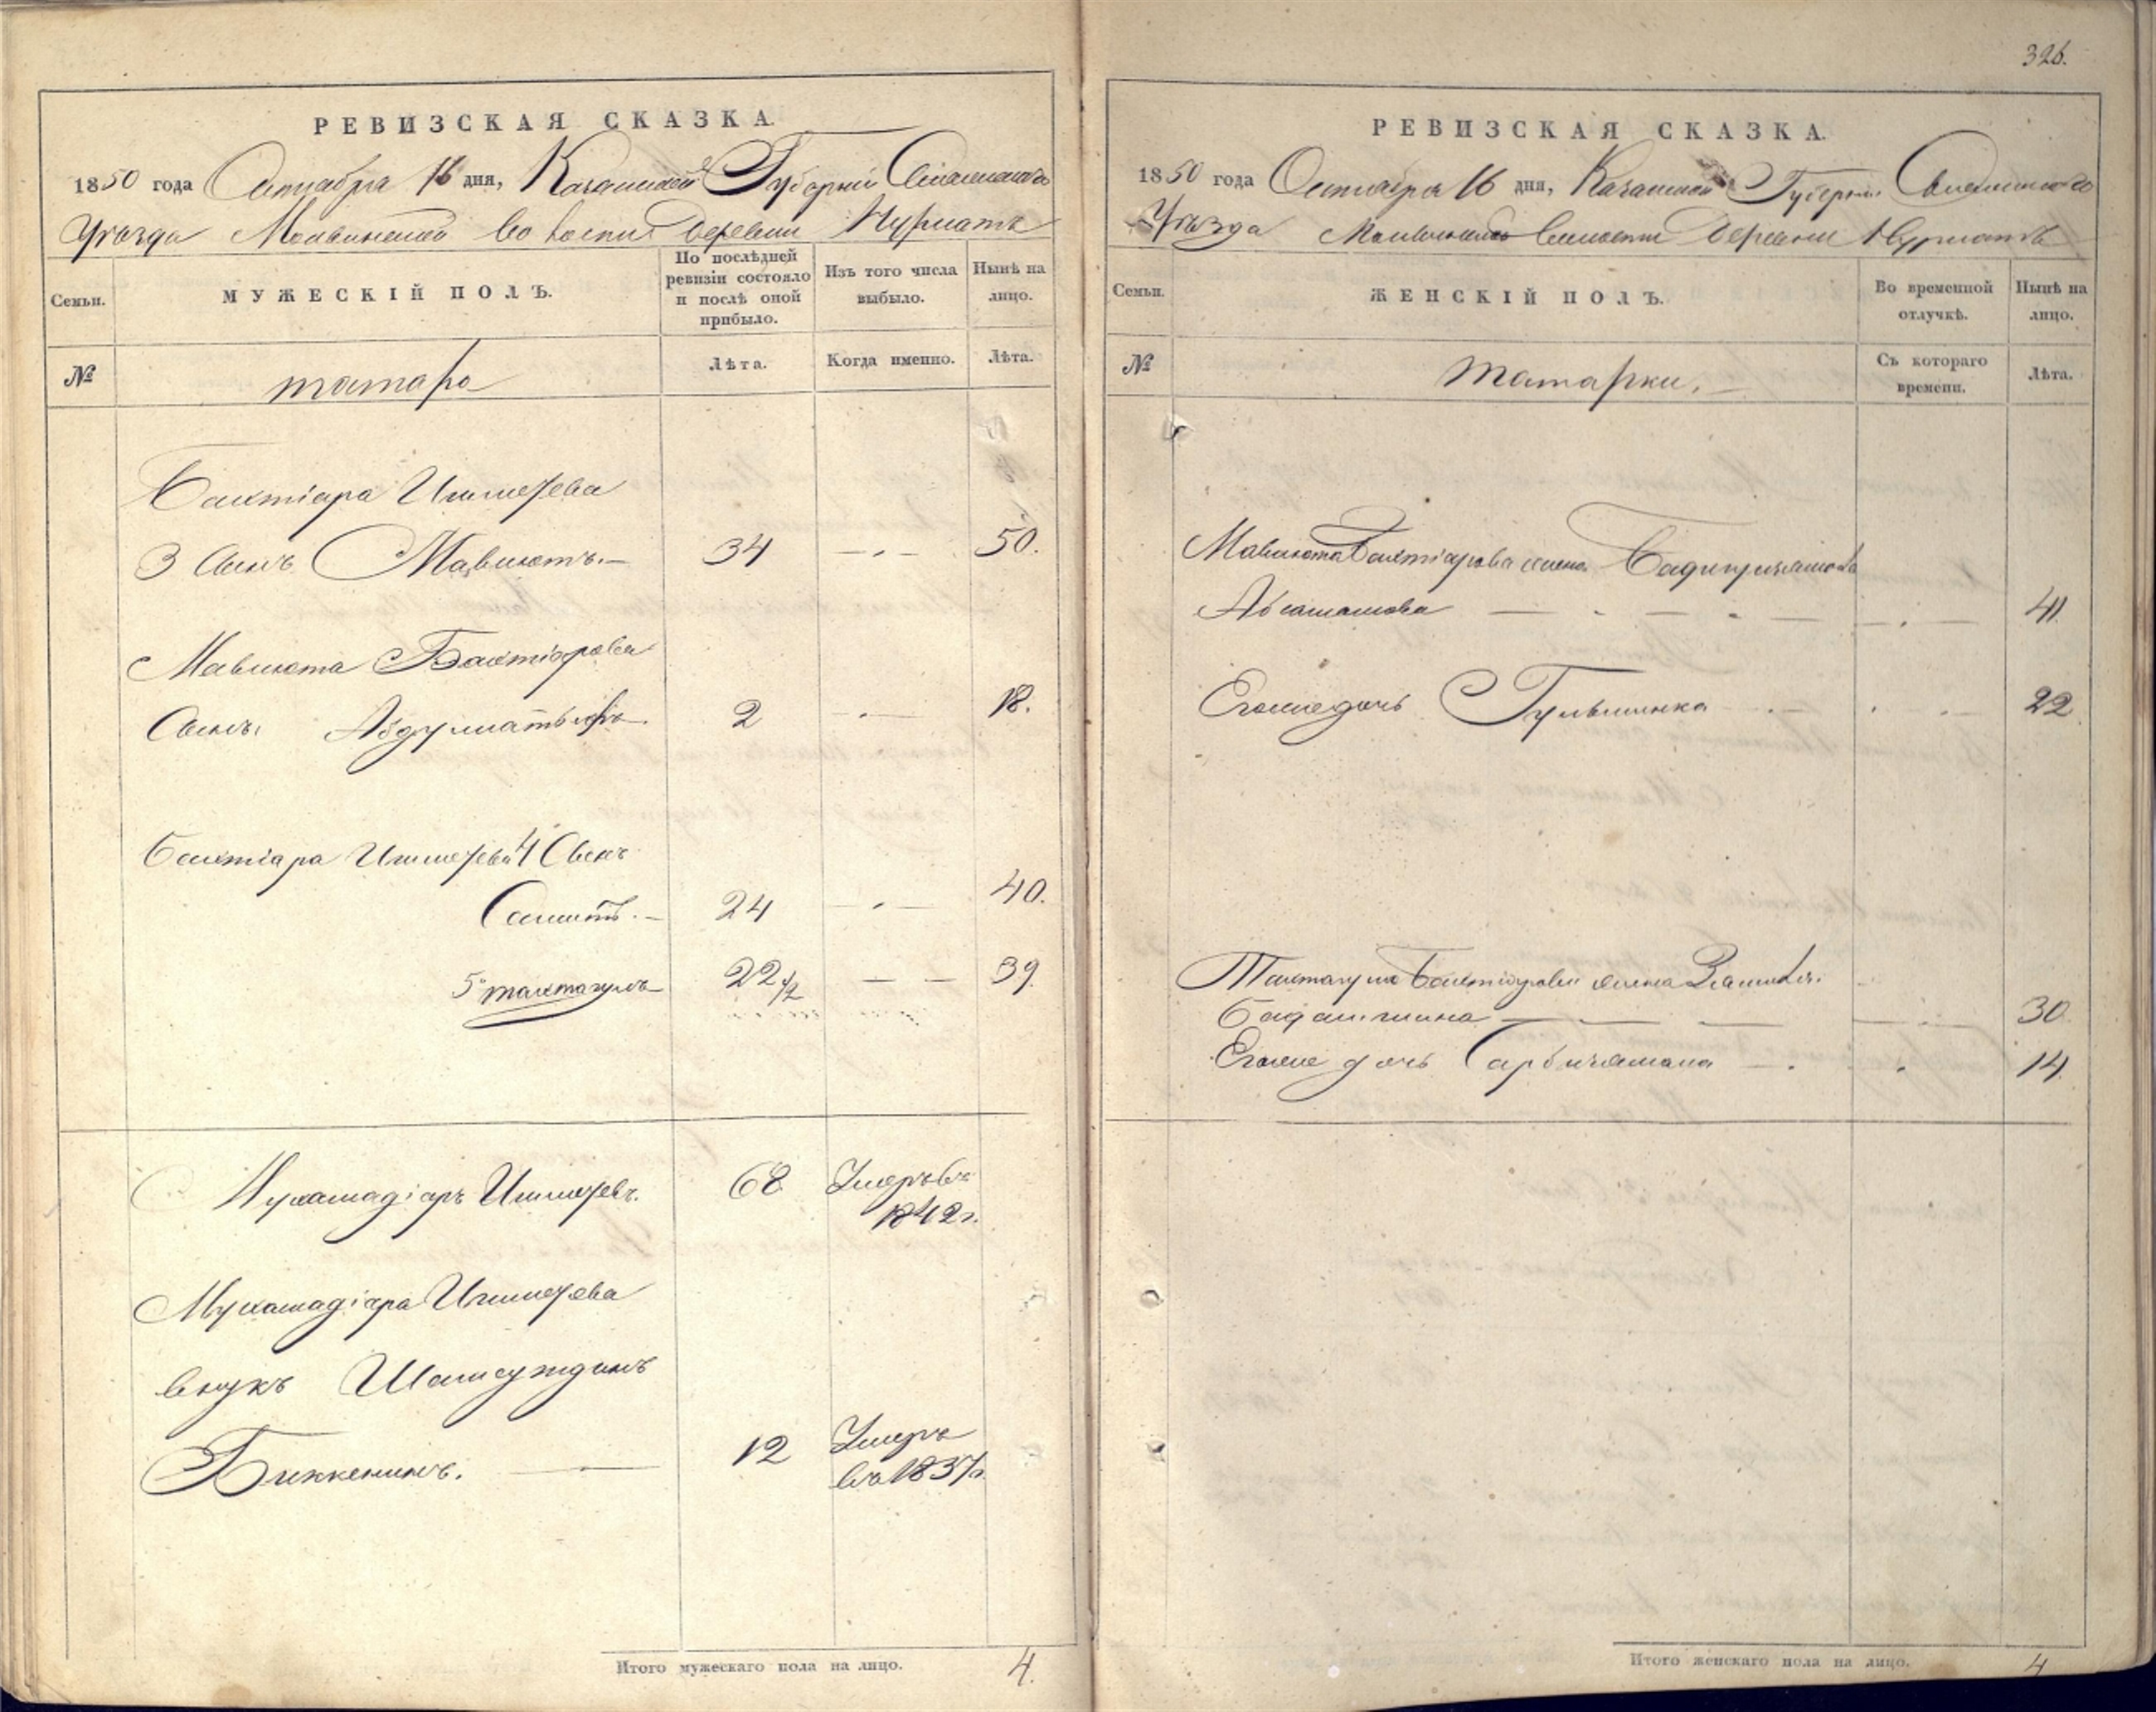 РЕВИЗСКАЯ СКАЗКА.
1850 года Октября 16 дня, Казанской Губерніи Свіяжскаго
Уѣзда Молвинской Волости Деревни Нурлатъ
Семьи.
МУЖЕСКІЙ ПОЛЪ.
По послѣдней ревизіи состояло и послѣ оной прибыло.
Изъ того числа выбыло.
Нынѣ на лицо.
№
татара
Лѣта.
Когда именно.
Лѣта.
Бахтіара Ишмеева
3 Сынъ Мавлютъ. 34 50.
Мавлюта Бахтіарова
Сынъ Абдуллатыфъ. 2 18.
Бахтіара Ишмеева 4 Сынъ
24 40.
5 Тахтагулъ 22 1/2 39.
Мухамадіаръ Ишмеевъ. 68 Умеръ въ
1842 г.
Мухамадіара Ишмеева
внукъ
Биккенинъ. 12 Умеръ
въ 1837 г.
Итого мужескаго пола на лицо. 4.
326.
РЕВИЗСКАЯ СКАЗКА.
1850 года Октября 16 дня, Казанской Губерніи Свіяжскаго
Уѣзда Молвинской Волости Деревни Нурлатъ
Семьи.
ЖЕНСКІЙ ПОЛЪ.
Во временной отлучкѣ.
Нынѣ на лицо.
№
Татарки.
Съ котораго времени.
Лѣта.
Мавлюта Бахтіарова жена
41.
Его же дочь 22
Тахтагула Бахтіарова жена
30.
Его же дочь 14.
Итого женскаго пола на лицо. 4